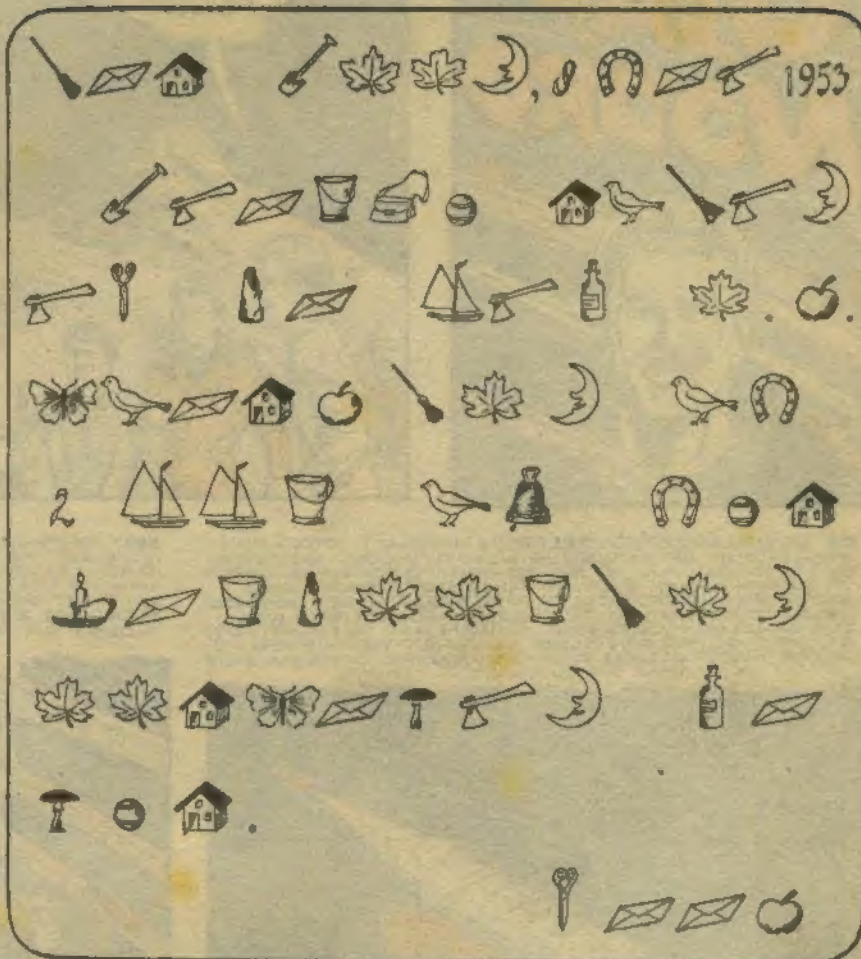 , 8 1953
. .
2
.